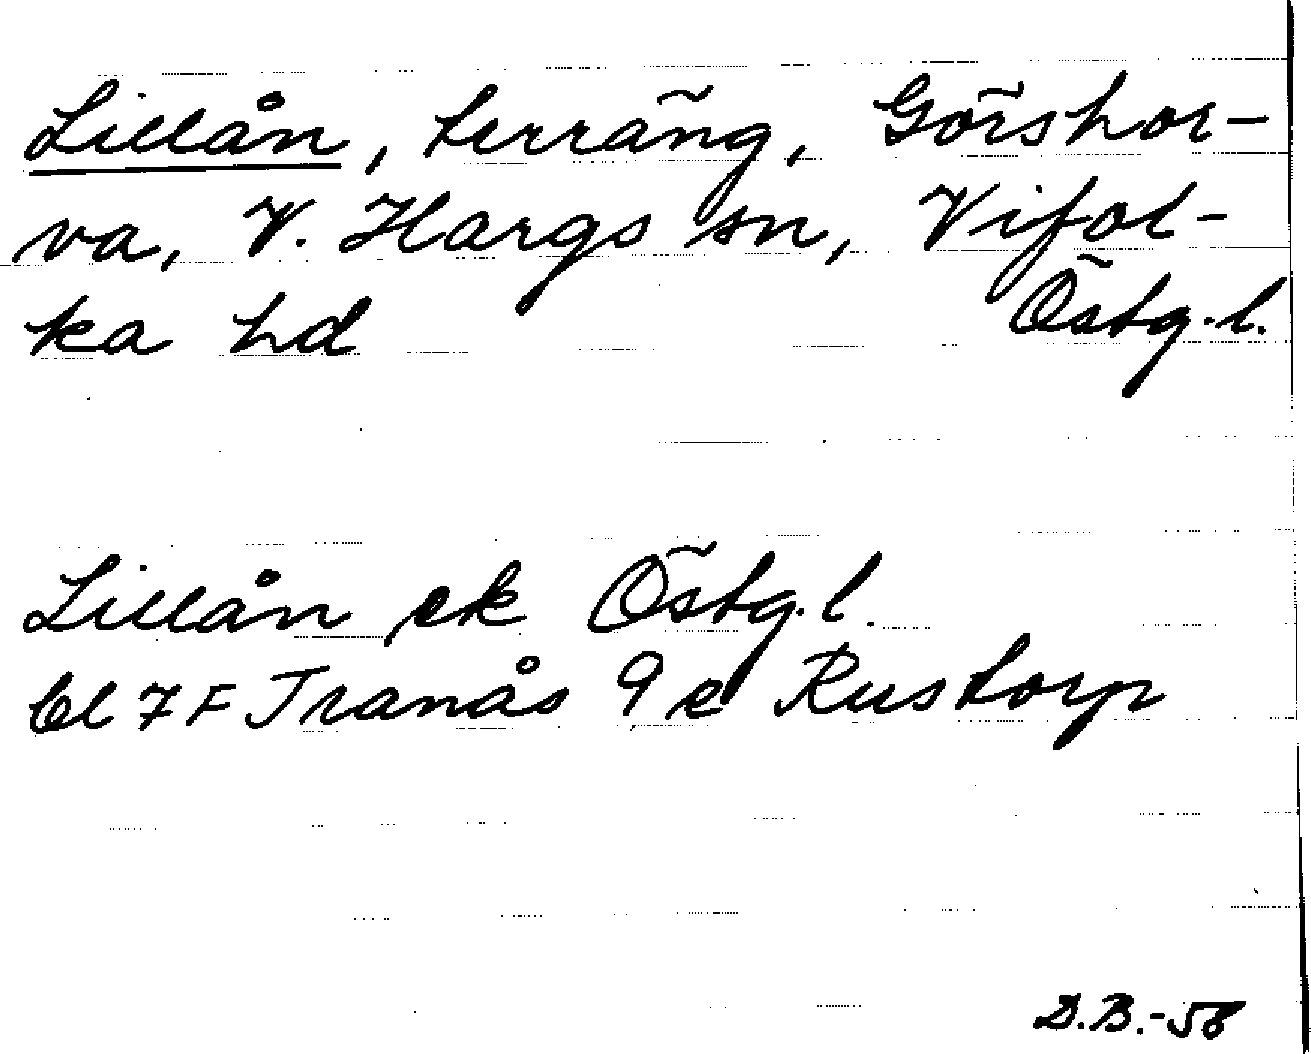 Lillån, terräng, Görshor-
va, V. Hargs sn, Vifol-
ka hd Östg.l.
Lillån ek Östg.l.
bl 7F Tranås 9 e Rustorp
D.B.-58